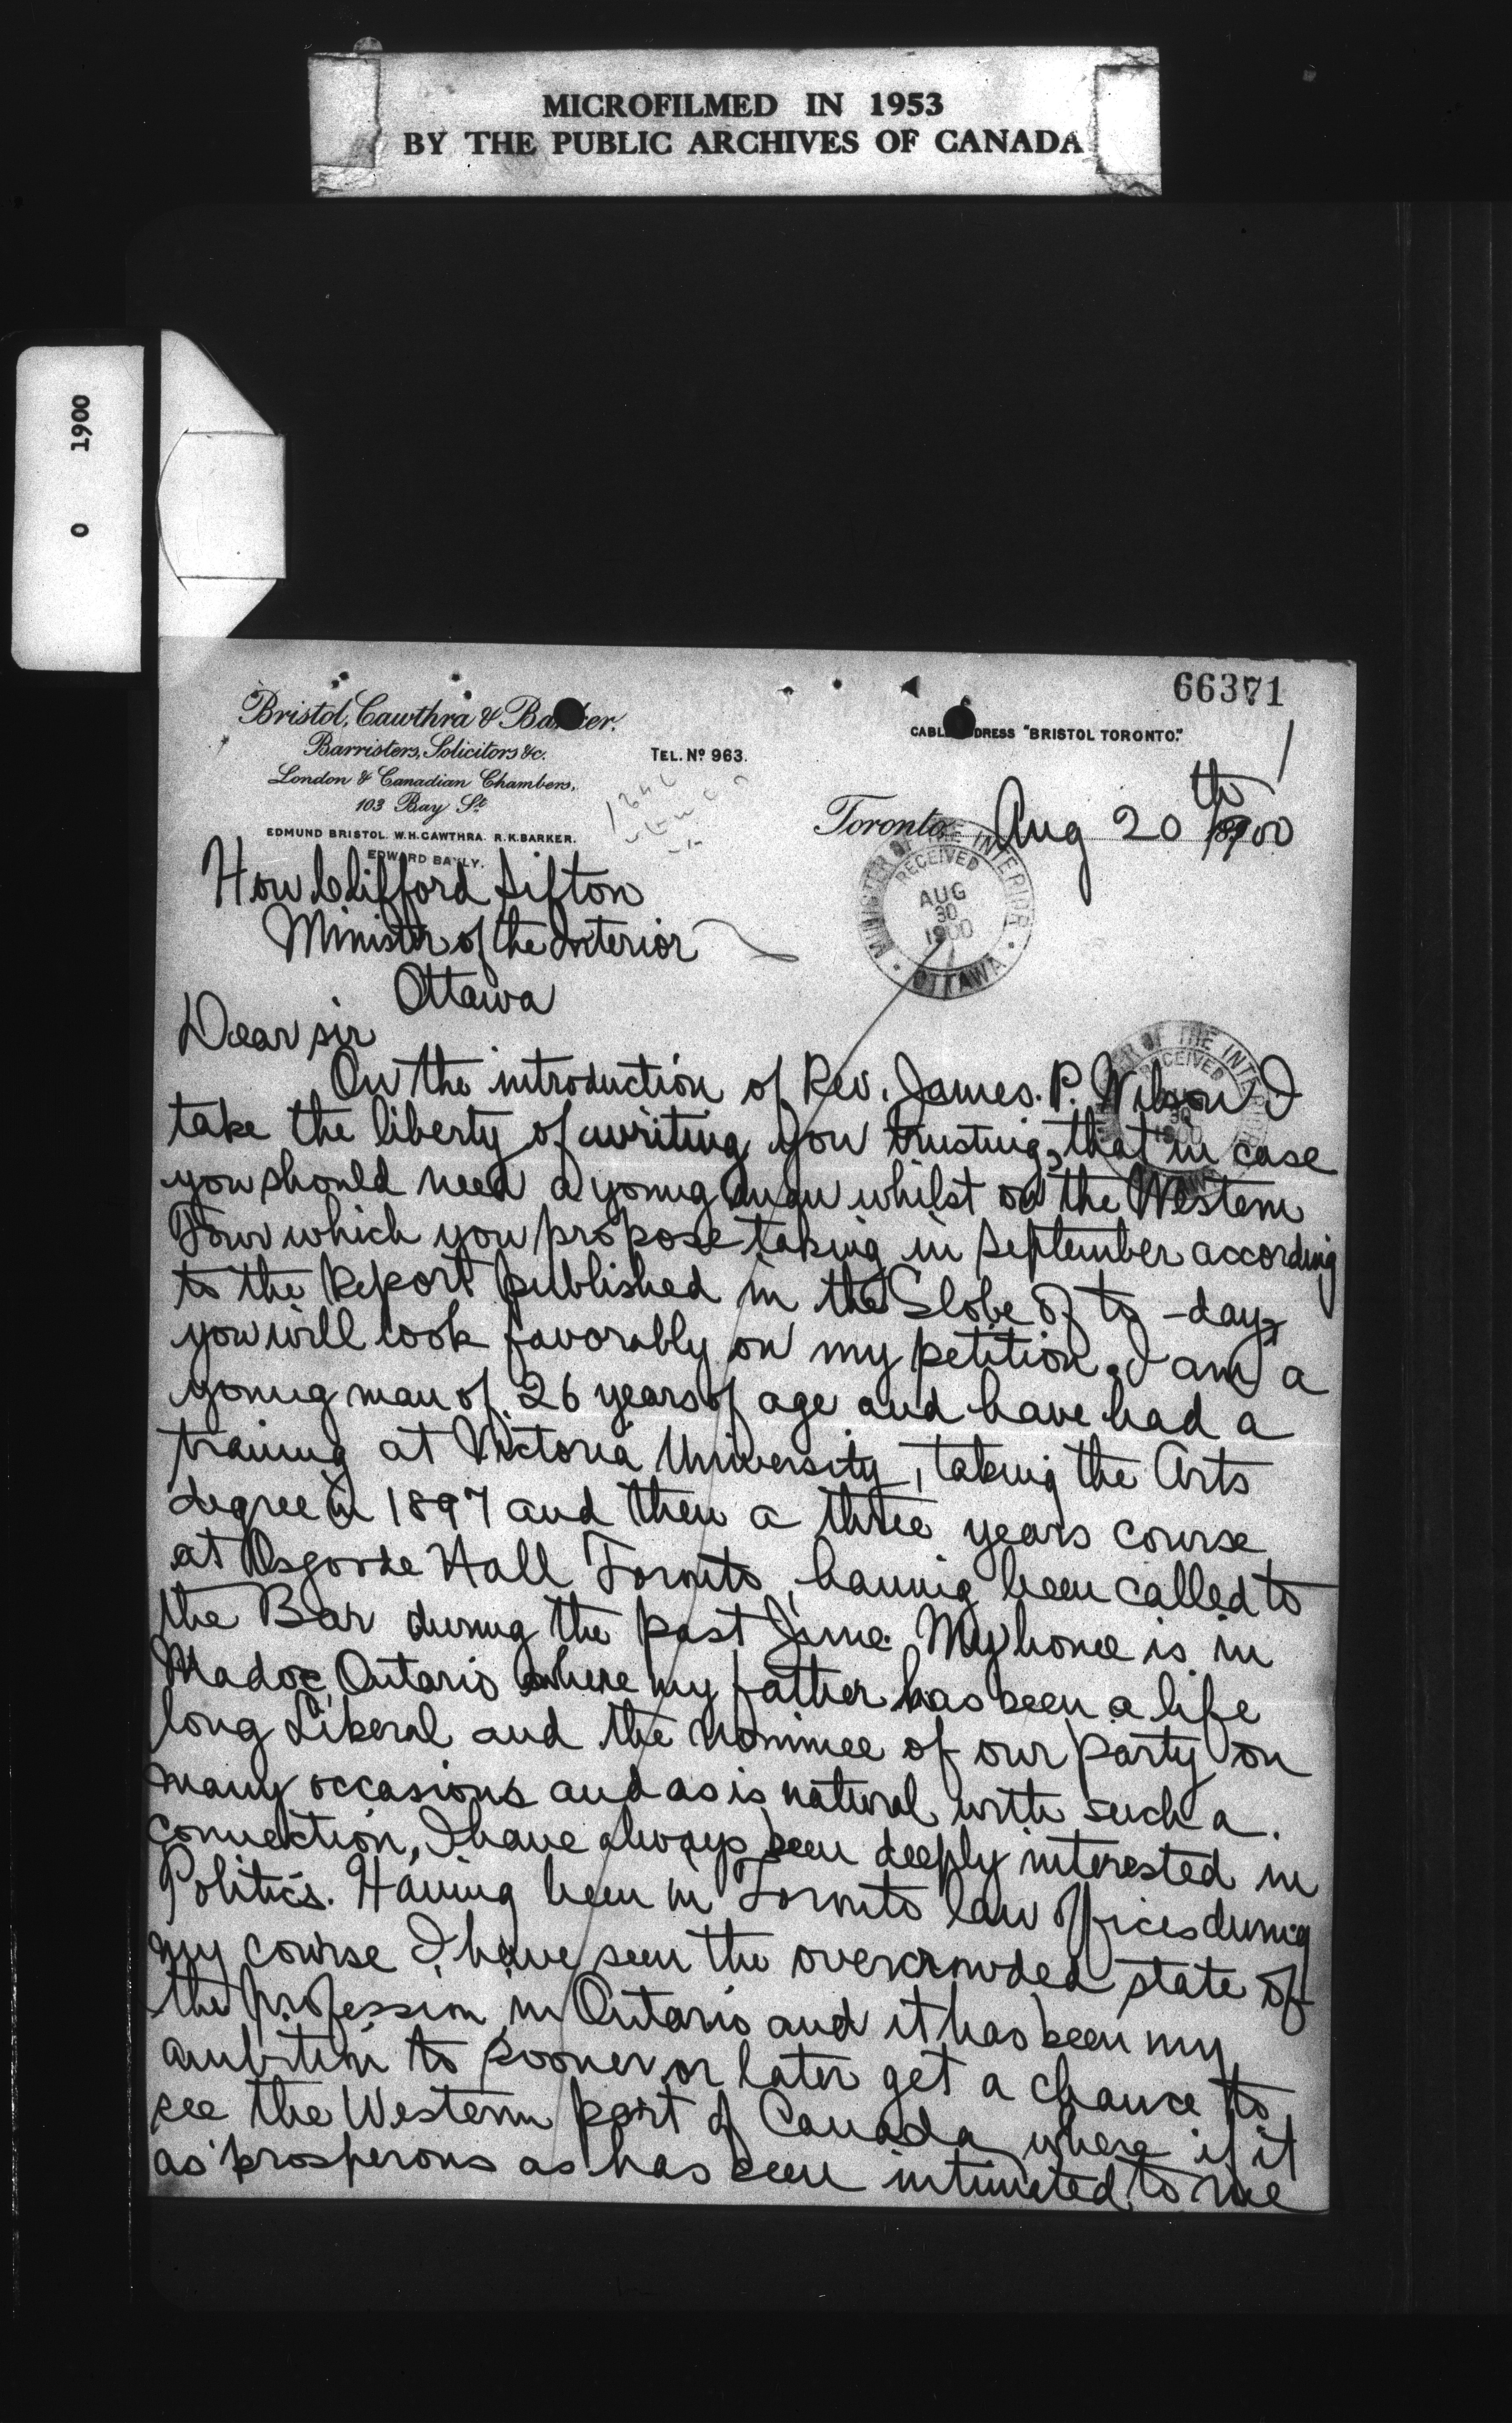 MICROFILMED IN 1953
BY THE PUBLIC ARCHIVES OF CANADA
0 1900
66371
Bristol, Cawthra & Barker.
Barristers, Solicitors &c.
London & Canadian Chambers,
103 Bay St.
EDMUND BRISTOL. W.H. CAWTHRA. R.K. BARKER.
EDWARD BAYLY.
TEL. No 963.
CABLE ADDRESS "BRISTOL TORONTO."
Toronto Aug 20th 1900
MINISTER OF THE INTERIOR
RECEIVED
AUG
30
1900
OTTAWA
Hon Clifford Sifton
Minister of the Interior
Ottawa
Dear sir
On the introduction of Rev. James. P. Wilson I
take the liberty of writing you trusting, that in case
you should need a young man whilst on the Western
Tour which you propose taking in September according
to the Report published in the Globe of to-day,
you will look favorably on my petition. I am a
young man of 26 years of age and have had a
training at Victoria University, taking the Arts
degree in 1897 and then a three years course
at Osgoode Hall Toronto, having been called to
the Bar during the past June. My home is in
Madoc, Ontario where my father has been a life
long Liberal and the nominee of our party on
many occasions and as is natural with such a
connection, I have always been deeply interested in
Politics. Having been in Toronto law offices during
my course I have seen the overcrowded state of
the profession in Ontario and it has been my
ambition to sooner or later get a chance to
see the Western part of Canada where if it
as prosperous as has been intimated to me